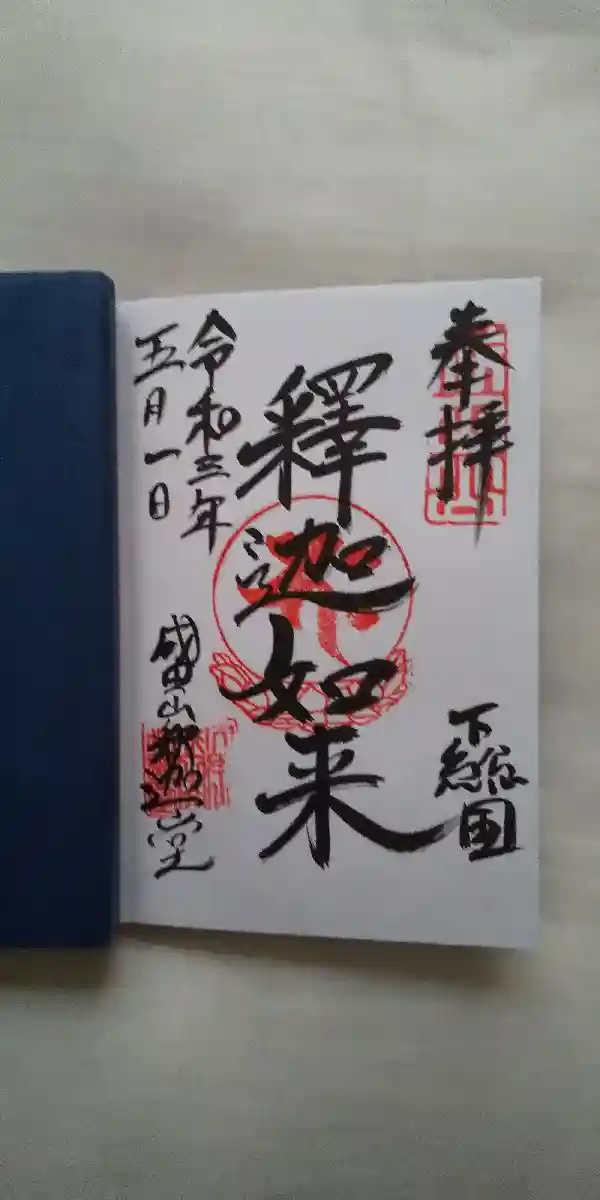 奉拝
下総国
釋迦如来
令和三年
五月一日
釈迦堂